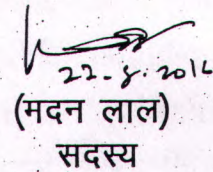 22-8-2016
(मदन लाल)
सदस्य